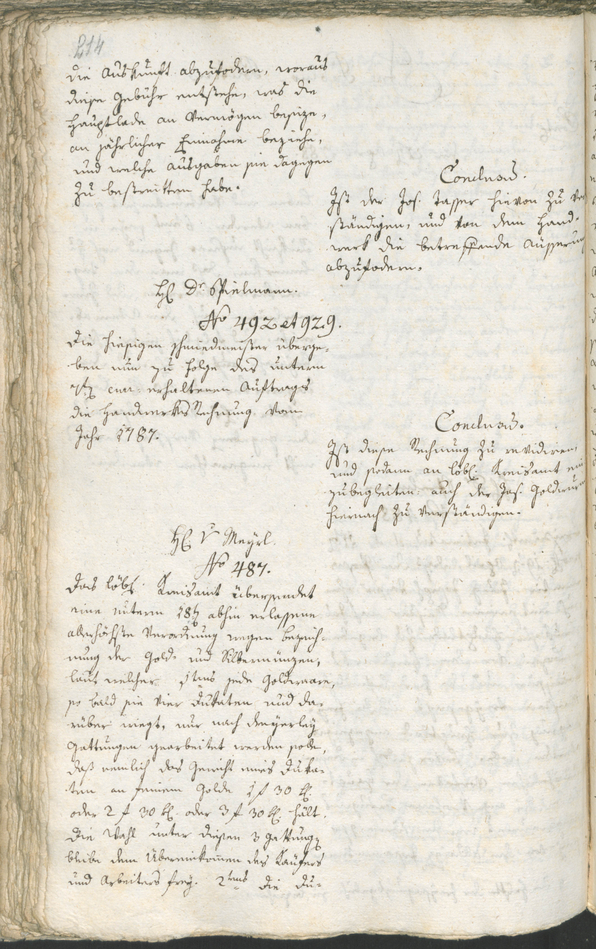 214
die Auskunft abzufodern, woraus
diese Gebühr entstehe, was die
Hauptlade an Vermögen besize,
an jährlicher Einnahme beziehe,
und welche Ausgaben sie dagegen
zu bestreitten habe.
Conclusum.
Ist der Jos. Tasser hievon zu ver
ständigen, und von dem Hand-
werk die betreffende Äusserung
abzufodern.
H. Dr. Spielmann.
No 492 et 929.
Die hiesigen Schmiedmeister überge-
ben nun zu Folge des unterm
erhaltenen Auftrags
die Handwerks Rechnung vom
Jahr 1787.
Conclusum.
Ist diese Rechnung zu revidiren,
und sodann an löbl. Kreisamt ein
zubegleiten, auch der Jos. Goldwurm
hienach zu verständigen.
H. v. Meyrl.
No 487.
Das löbl. Kreisamt übersendet
eine unterm 18t abhin erlassene
allerhöchste Verordnung wegen bezeich-
nung der Gold- und Silbermünzen,
laut welcher 1tens jede Goldwaare,
so bald sie vier Dukaten und da-
rüber wiegt, nur nach dreyerley
Gattungen gearbeitet werden solle,
daß nemlich das Gewicht eines Duka-
ten an feinem Golde 1 f 30 kr.
oder 2 f 30 kr. oder 3 f 30 kr. hält.
Die Wahl unter diesen 3 Gattungen
bleibe dem Übereinkommen des Käufers
und Arbeiters frey. 2tens die Du-